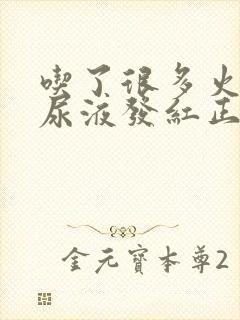 喫了很多火
尿液發紅正
金元寶本尊2